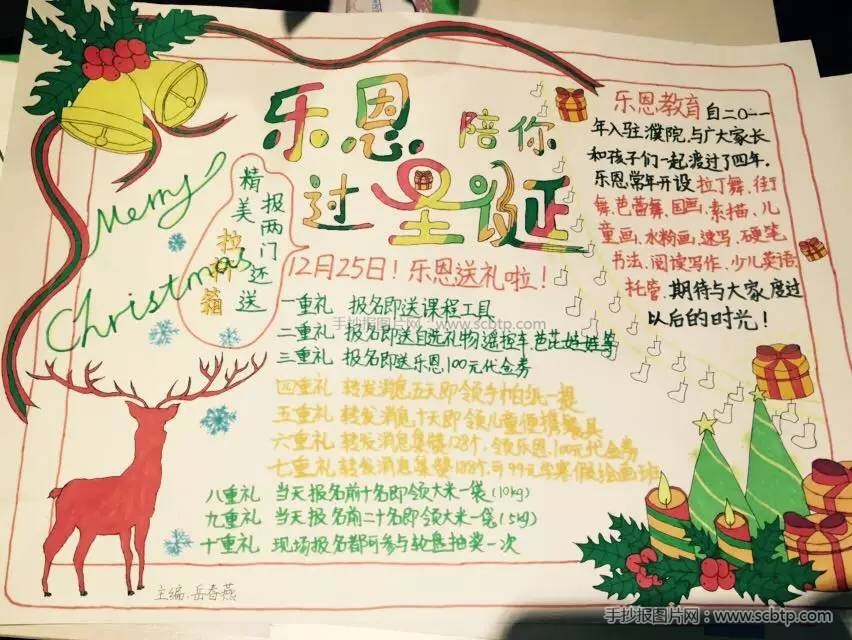 乐恩 陪你
过圣诞
Merry
Christmas
报两门还送
精美拉杆箱
12月25日!乐恩送礼啦!
一重礼 报名即送课程工具
二重礼 报名即送自选礼物遥控车,芭芘娃娃等
三重礼 报名即送乐恩100元代金券
四重礼 转发消息五天即领手帕纸一提
五重礼 转发消息十天即领儿童便携餐具
六重礼 转发消息集赞128个,领乐恩100元代金券
七重礼 转发消息集赞188个可99元学寒假绘画班
八重礼 当天报名前十名即领大米一袋(10kg)
九重礼 当天报名前二十名即领大米一袋(5kg)
十重礼 现场报名都可参与轮盘抽奖一次
乐恩教育自二〇一一
年入驻濮院,与广大家长
和孩子们一起渡过了四年.
乐恩常年开设拉丁舞、街
舞、芭蕾舞、国画、素描、儿
童画、水粉画、速写、硬笔
书法、阅读写作、少儿英语,
托管.期待与大家度过
以后的时光!
主编:岳春燕
手抄报图片网:www.scbtp.com
手抄报图片网:www.scbtp.com